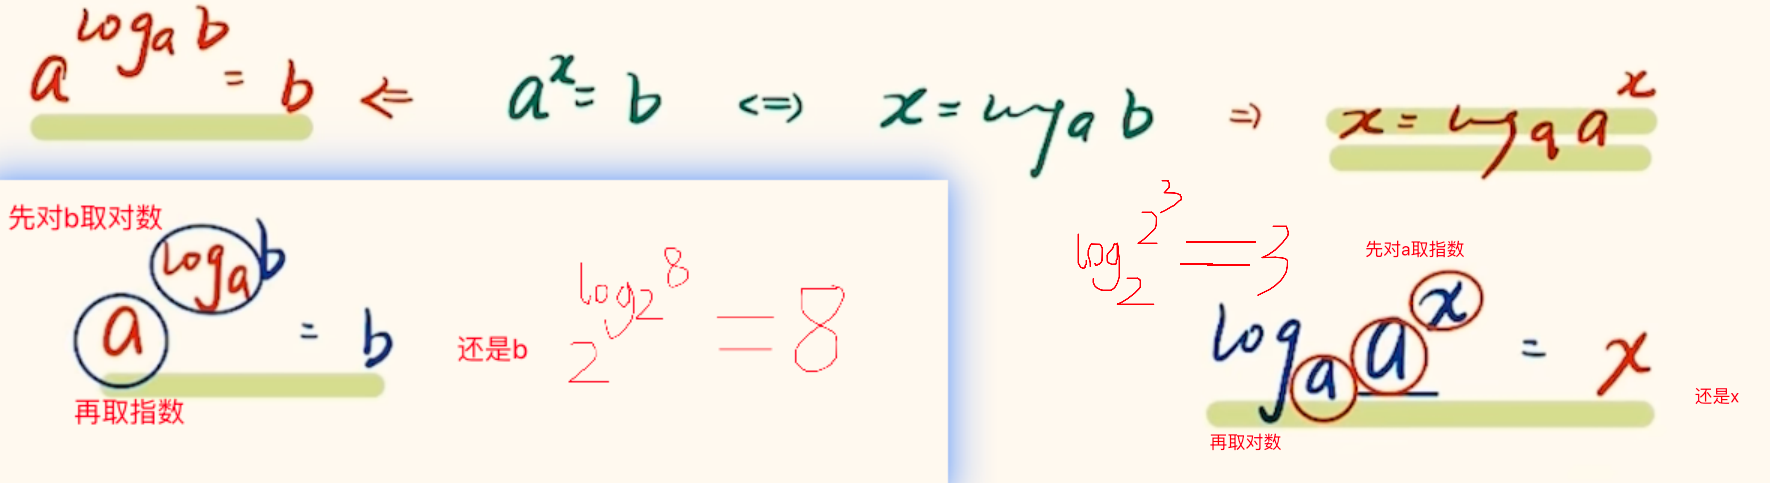 a^{log_a b} = b ⇐ a^x = b <=> x = log_a b => x = log_a a^x
先对b取对数
a^{log_a b} = b
再取指数
还是b
2^{log_2 8} = 8
log_2 2^3 = 3
先对a取指数
log_a a^x = x
还是x
再取对数